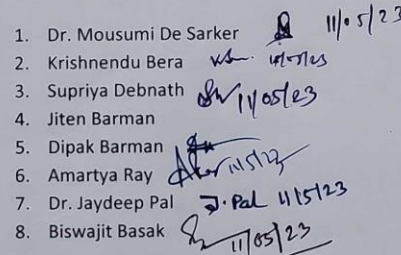 1. Dr. Mousumi De Sarker 11/05/23
2. Krishnendu Bera
3. Supriya Debnath 11/05/23
4. Jiten Barman
5. Dipak Barman
6. Amartya Ray 11/5/23
7. Dr. Jaydeep Pal J. Pal 11/5/23
8. Biswajit Basak 11/05/23